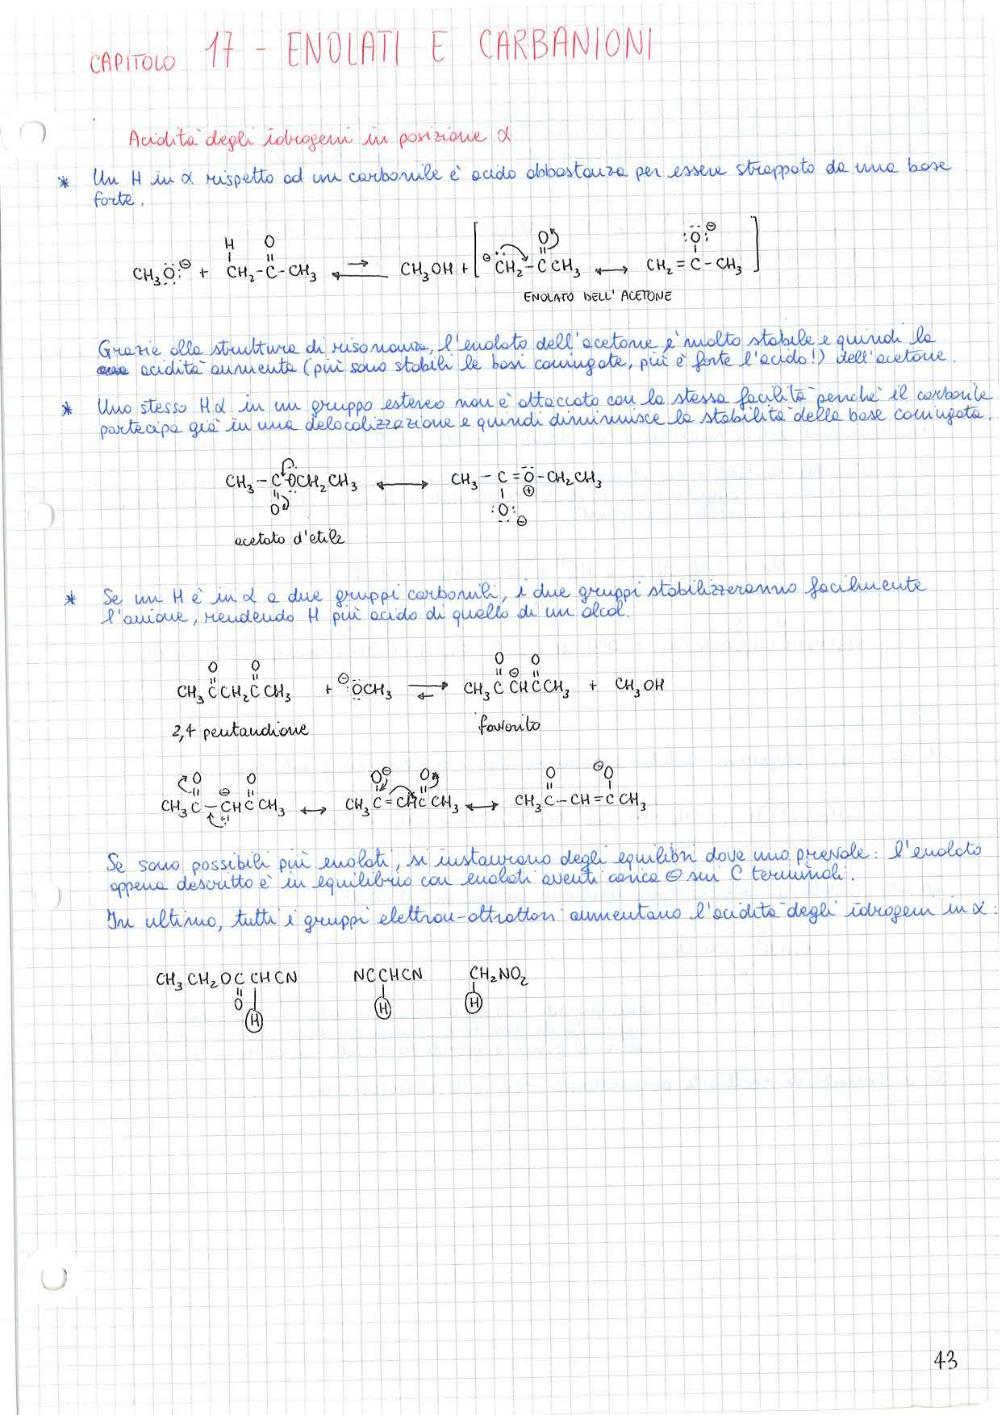 CAPITOLO 17 - ENOLATI E CARBANIONI
Acidità degli idrogeni in posizione α
* Un H in α rispetto ad un carbonile è acido abbastanza per essere strappato da una base
forte.
H O :Ö:⊖
CH₃Ö:⊖ + CH₂-C-CH₃ ⇌ CH₃OH + [⊖:CH₂-C CH₃ ⟷ CH₂=C-CH₃]
ENOLATO DELL'ACETONE
Grazie alla struttura di risonanza, l'enolato dell'acetone è molto stabile e quindi la
acidità aumenta (più sono stabili le basi coniugate, più è forte l'acido!) dell'acetone.
* Uno stesso Hα in un gruppo estereo non è attaccato con la stessa facilità perché il carbonile
partecipa già in una delocalizzazione e quindi diminuisce la stabilità della base coniugata.
CH₃-C OCH₂CH₃ ⟷ CH₃-C=Ö-CH₂CH₃
O ⊕
:O: ⊖
acetato d'etile
* Se un H è in α a due gruppi carbonili, i due gruppi stabilizzeranno facilmente
l'anione, rendendo H più acido di quello di un alcol.
O O O O
CH₃CCH₂CCH₃ + ⊖:ÖCH₃ ⇌ CH₃C CHCCH₃ + CH₃OH
2,4 pentandione favorito
O O O⊖ O O ⊖O
CH₃C-CHCCH₃ ⟷ CH₃C=CHCCH₃ ⟷ CH₃C-CH=CCH₃
Se sono possibili più enolati, si instaurano degli equilibri dove uno prevale: l'enolato
appena descritto è in equilibrio con enolati aventi carica ⊖ sui C terminali.
In ultimo, tutti i gruppi elettron-attrattori aumentano l'acidità degli idrogeni in α:
CH₃CH₂OCCHCN NCCHCN CH₂NO₂
O H H H
43